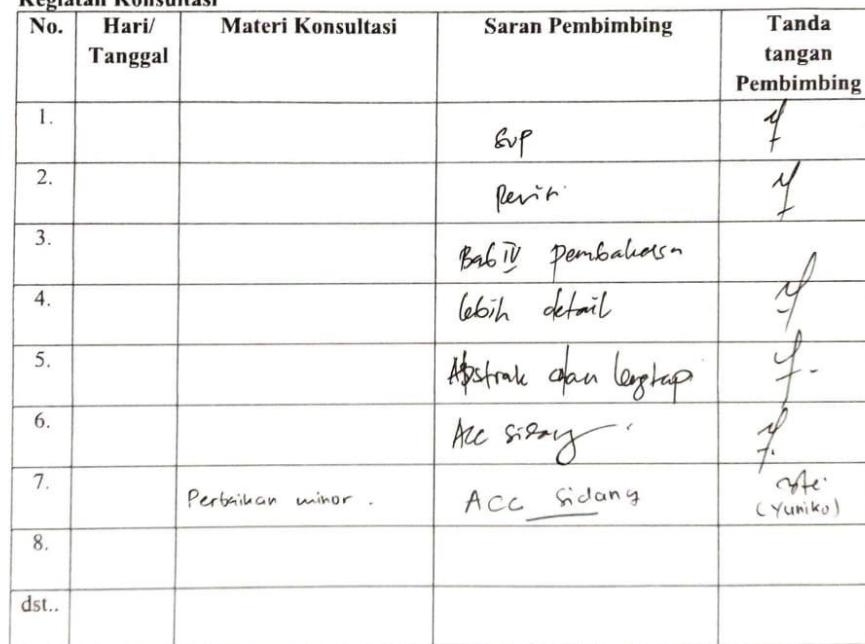 Kegiatan Konsultasi
No. Hari/ Tanggal Materi Konsultasi Saran Pembimbing Tanda tangan Pembimbing
1.
2.
3. Bab IV pembahasan
4. lebih detail
5. Abstrak dan lengkap
6. Acc sidang
7. Perbaikan minor. ACC Sidang (Yuniko)
8.
dst..